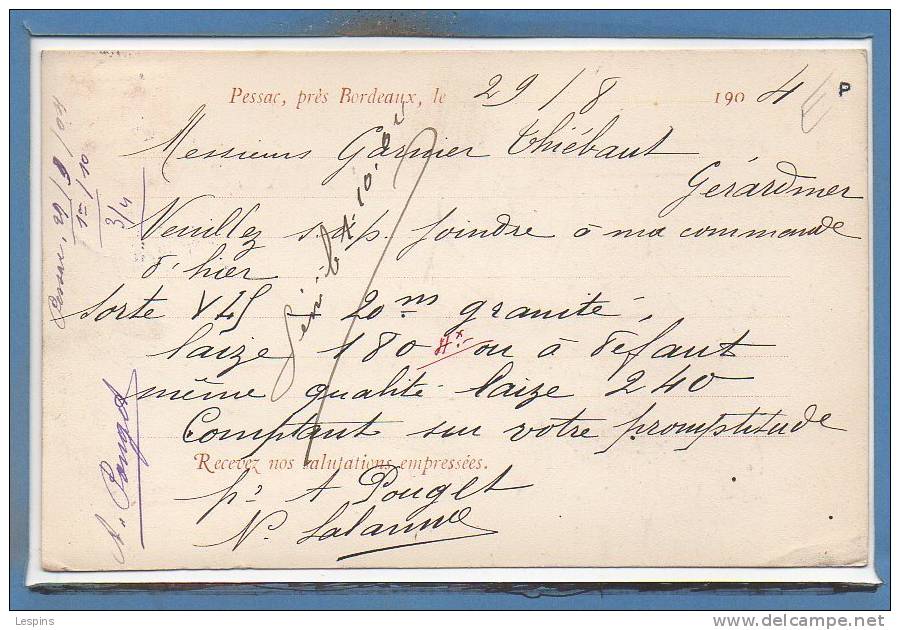 Pessac, près Bordeaux, le 29/8 1904
P
Messieurs Garnier Thiébaut
Gérardmer
Veuillez s.v.p. joindre à ma commande
d'hier
sorte V45 20 m granité,
laize 180 ou à défaut
même qualité laize 240
Comptant sur votre promptitude
Recevez nos salutations empressées.
pr A Pouget
N. Lalanne
Pessac, 29/8/04
3/4
A. Pouget
Lespins
www.delcampe.net